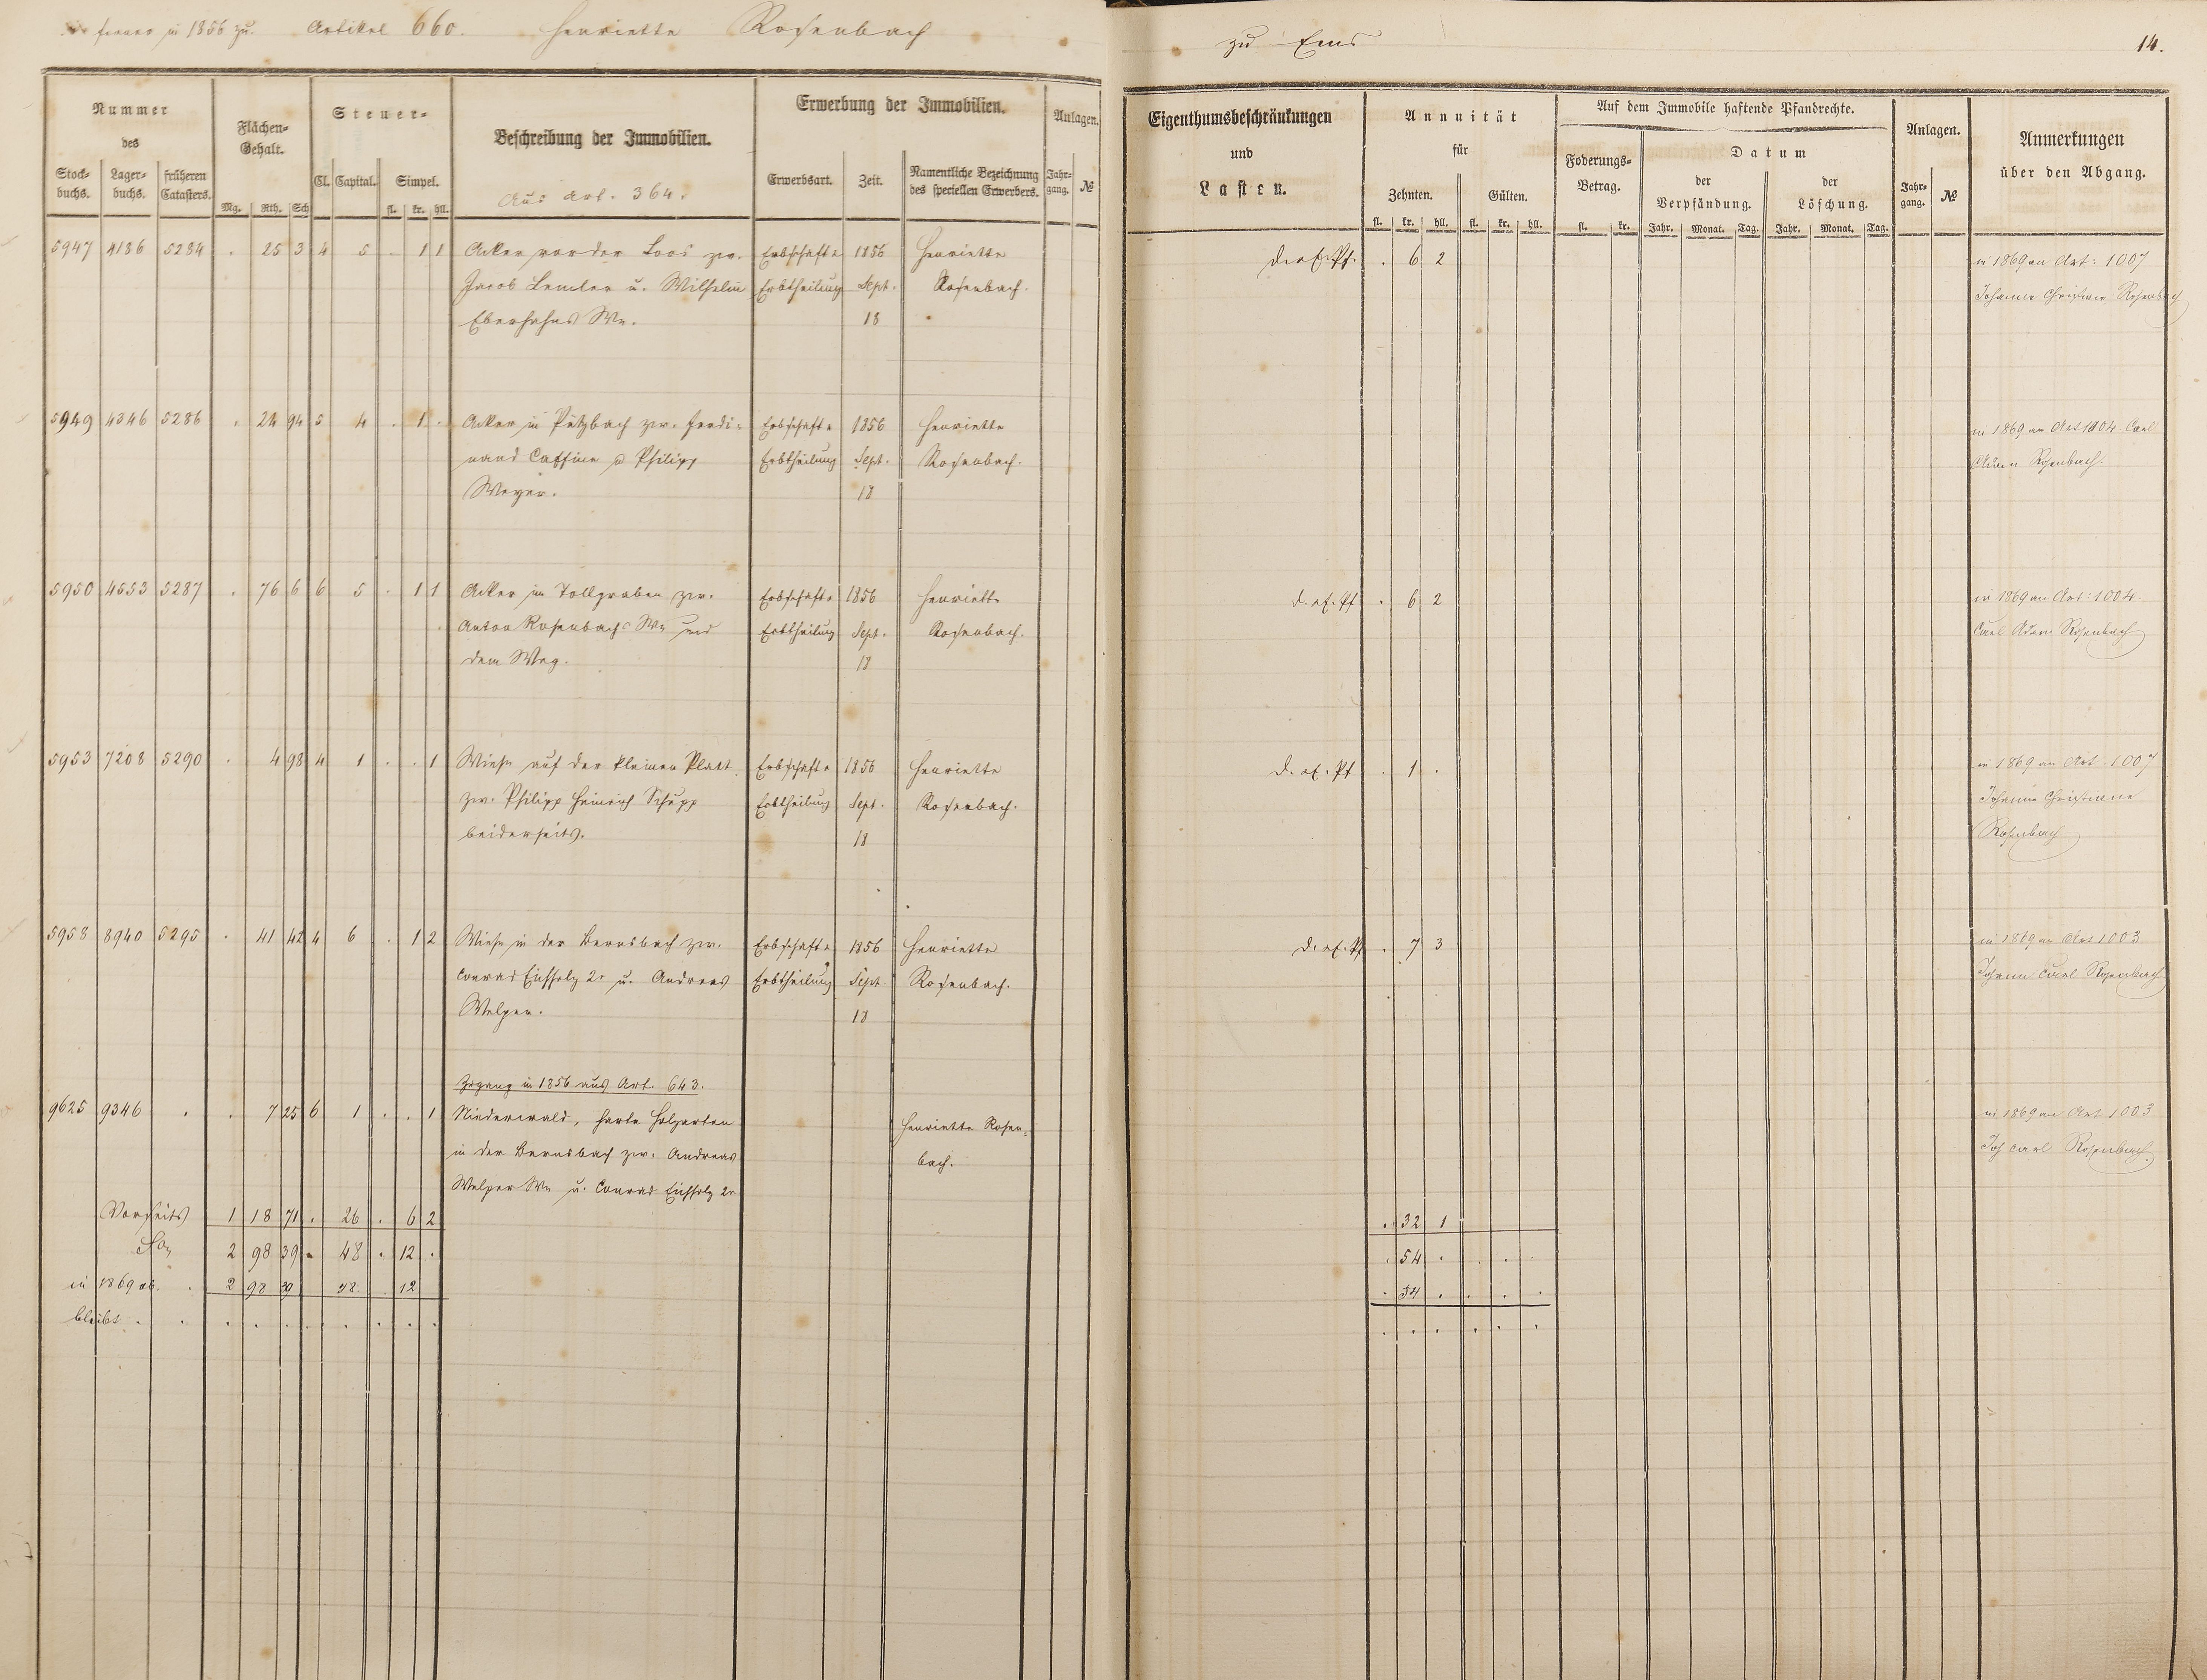 ferner in 1856 zu. Artikel 660. Henriette Rosenbach
zu Ems 14.
Nummer
des
Stock-
buchs.
Lager-
buchs.
früheren
Catasters.
Flächen-
Gehalt.
Mg. Rth. Sch
Steuer-
Cl. Capital. Simpel.
fl. kr. hll.
Beschreibung der Immobilien.
Aus Art. 364.
Erwerbung der Immobilien.
Erwerbsart. Zeit.
Namentliche Bezeichnung
des speciellen Erwerbers.
Anlagen.
Jahr-
gang. №
Eigenthumsbeschränkungen
und
Lasten.
Annuität
für
Zehnten. Gülten.
fl. kr. hll. fl. kr. hll.
Auf dem Immobile haftende Pfandrechte.
Foderungs-
Betrag.
fl. kr.
Datum
der
Verpfändung.
der
Löschung.
Jahr. Monat. Tag. Jahr. Monat. Tag.
Anlagen.
Jahr-
gang. №
Anmerkungen
über den Abgang.
5947 4186 5284 . 25 3 4 5 . 1 1 Acker vor der Loos zw. Erbschaft u. 1856 Henriette . 6 2 in 1869 an Art: 1007
Jacob Lemler u. Wilhelm Erbtheilung Sept. Rosenbach. Johanna Christiane Rosenbach
Eberhahns We. 18
5949 4346 5286 . 24 94 5 4 . 1 . Acker in Pützbach zw. Ferdi- Erbschaft u. 1856 Henriette in 1869 an Art 1004 Carl
nand Caffine u Philipp Erbtheilung Sept. Rosenbach. Adam Rosenbach.
Meyer. 18
5950 4553 5287 . 76 6 6 5 . 1 1 Acker im Tollgraben zw. Erbschaft u. 1856 Henriette . 6 2 in 1869 an Art: 1004
Anton Rosenbachs We und Erbtheilung Sept. Rosenbach. Carl Adam Rosenbach
dem Weg. 18
5953 7208 5290 . 4 98 4 1 . . 1 Wiese auf der kleinen Platt Erbschaft u. 1856 Henriette . 1 . in 1869 an Art. 1007
zw. Philipp Heinrich Schupp Erbtheilung Sept. Rosenbach. Johanna Christiane
beiderseits. 18 Rosenbach
5958 8940 5295 . 41 42 4 6 . 1 2 Wiese in der Bernsbach zw. Erbschaft u. 1856 Henriette . 7 3 in 1869 an Art 1003
Conrad Eichholz 2r u. Andreas Erbtheilung Sept. Rosenbach. Johann Carl Rosenbach
Welper. 18
Zugang in 1856 aus Art. 643.
9625 9346 . . 7 25 6 1 . . 1 Niederwald, harte Holzarten Henriette Rosen- in 1869 an Art 1003
in der Bernsbach zw. Andreas bach. Joh Carl Rosenbach
Welper We u. Conrad Eichholz 2r
Vorseits 1 18 71 . 26 . 6 2 . 32 1
Sa 2 98 39 . 48 . 12 . . 54 .
in 1869 ab. . 2 98 39 48 12 . 54 .
bleibt . .